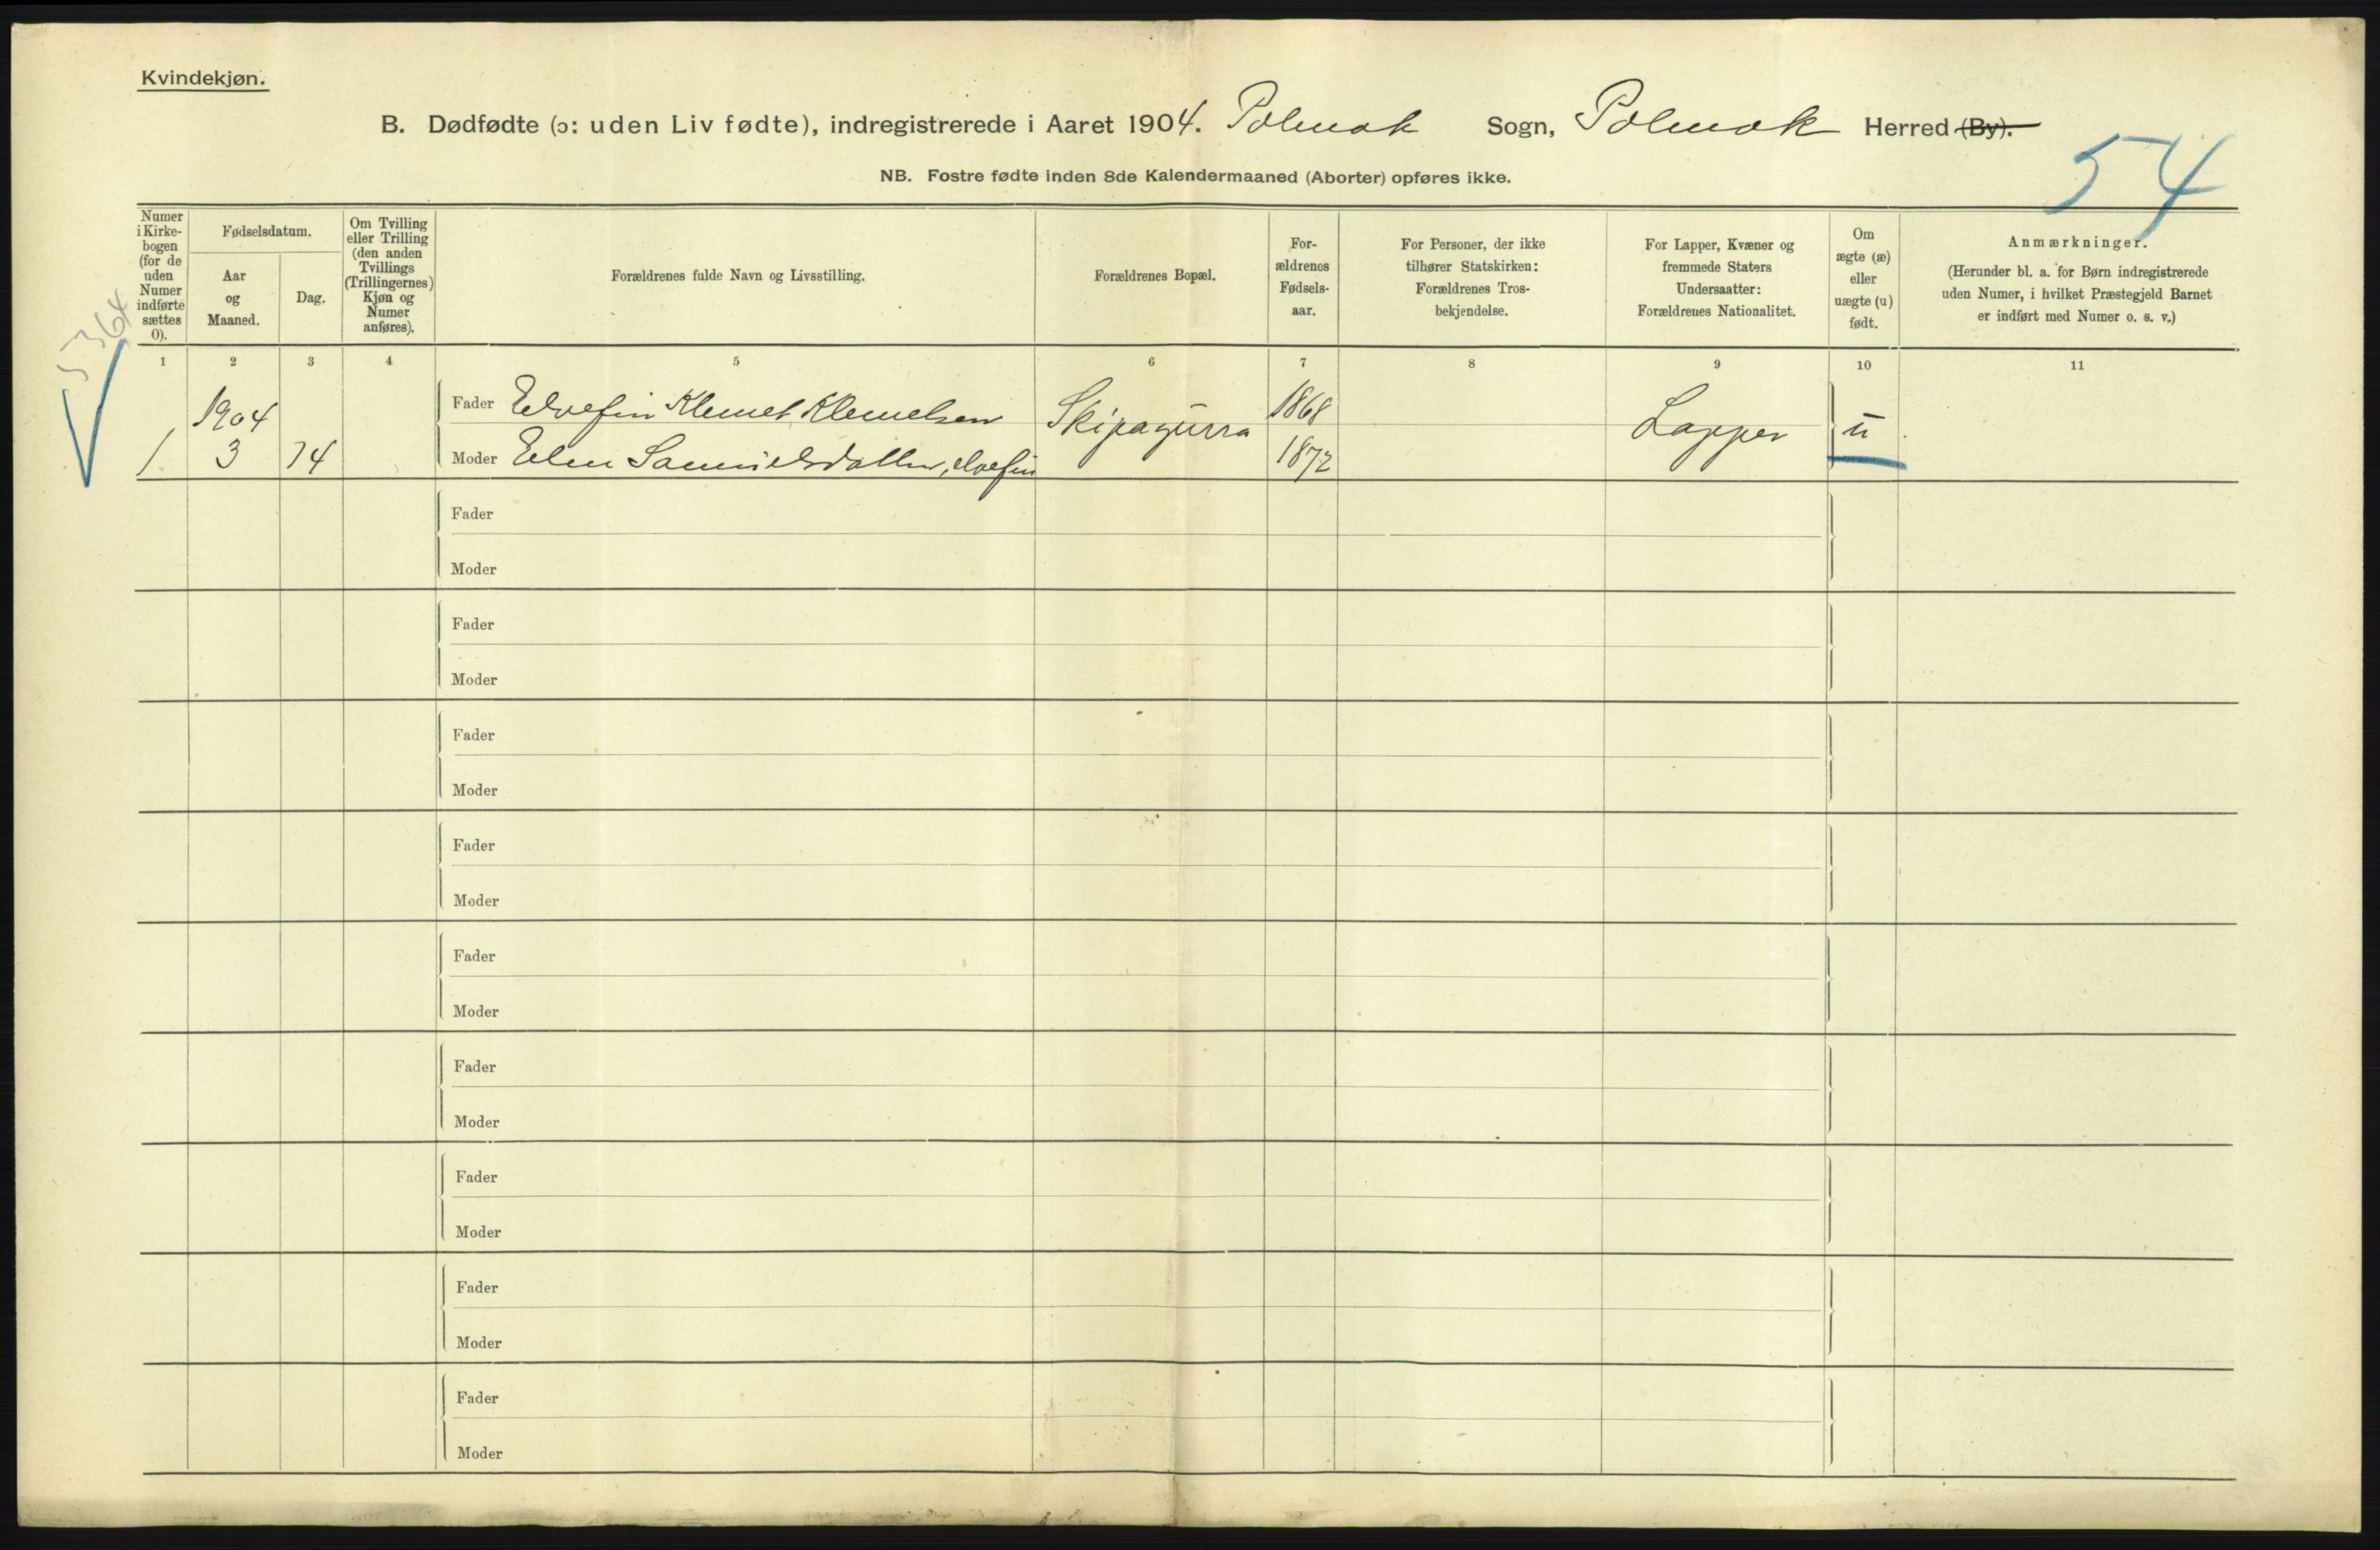 Kvindekjøn.
B. Dødfødte (ɔ: uden Liv fødte), indregistrerede i Aaret 1904. Polmak Sogn, Polmak Herred (By).
54
NB. Fostre fødte inden 8de Kalendermaaned (Aborter) opføres ikke.
Numer i Kirke-bogen (for de uden Numer indførte sættes 0).
Fødselsdatum.
Aar og Maaned.
Dag.
Om Tvilling eller Trilling (den anden Tvillings (Trillingernes) Kjøn og Numer anføres).
Forældrenes fulde Navn og Livsstilling.
Forældrenes Bopæl.
For-ældrenes Fødsels-aar.
For Personer, der ikke tilhører Statskirken: Forældrenes Tros-bekjendelse.
For Lapper, Kvæner og fremmede Staters Undersaatter: Forældrenes Nationalitet.
Om ægte (æ) eller uægte (u) født.
Anmærkninger.
(Herunder bl. a. for Børn indregistrerede uden Numer, i hvilket Præstegjeld Barnet er indført med Numer o. s. v.)
1 2 3 4 5 6 7 8 9 10 11
5364
1904
Fader Elvefin Klemet Klemetsen Skipagurra 1868 Lapper u
1 3 14 Moder Elen Samuelsdatter, elvefin 1872
Fader
Moder
Fader
Moder
Fader
Moder
Fader
Moder
Fader
Moder
Fader
Moder
Fader
Moder
Fader
Moder
Fader
Moder